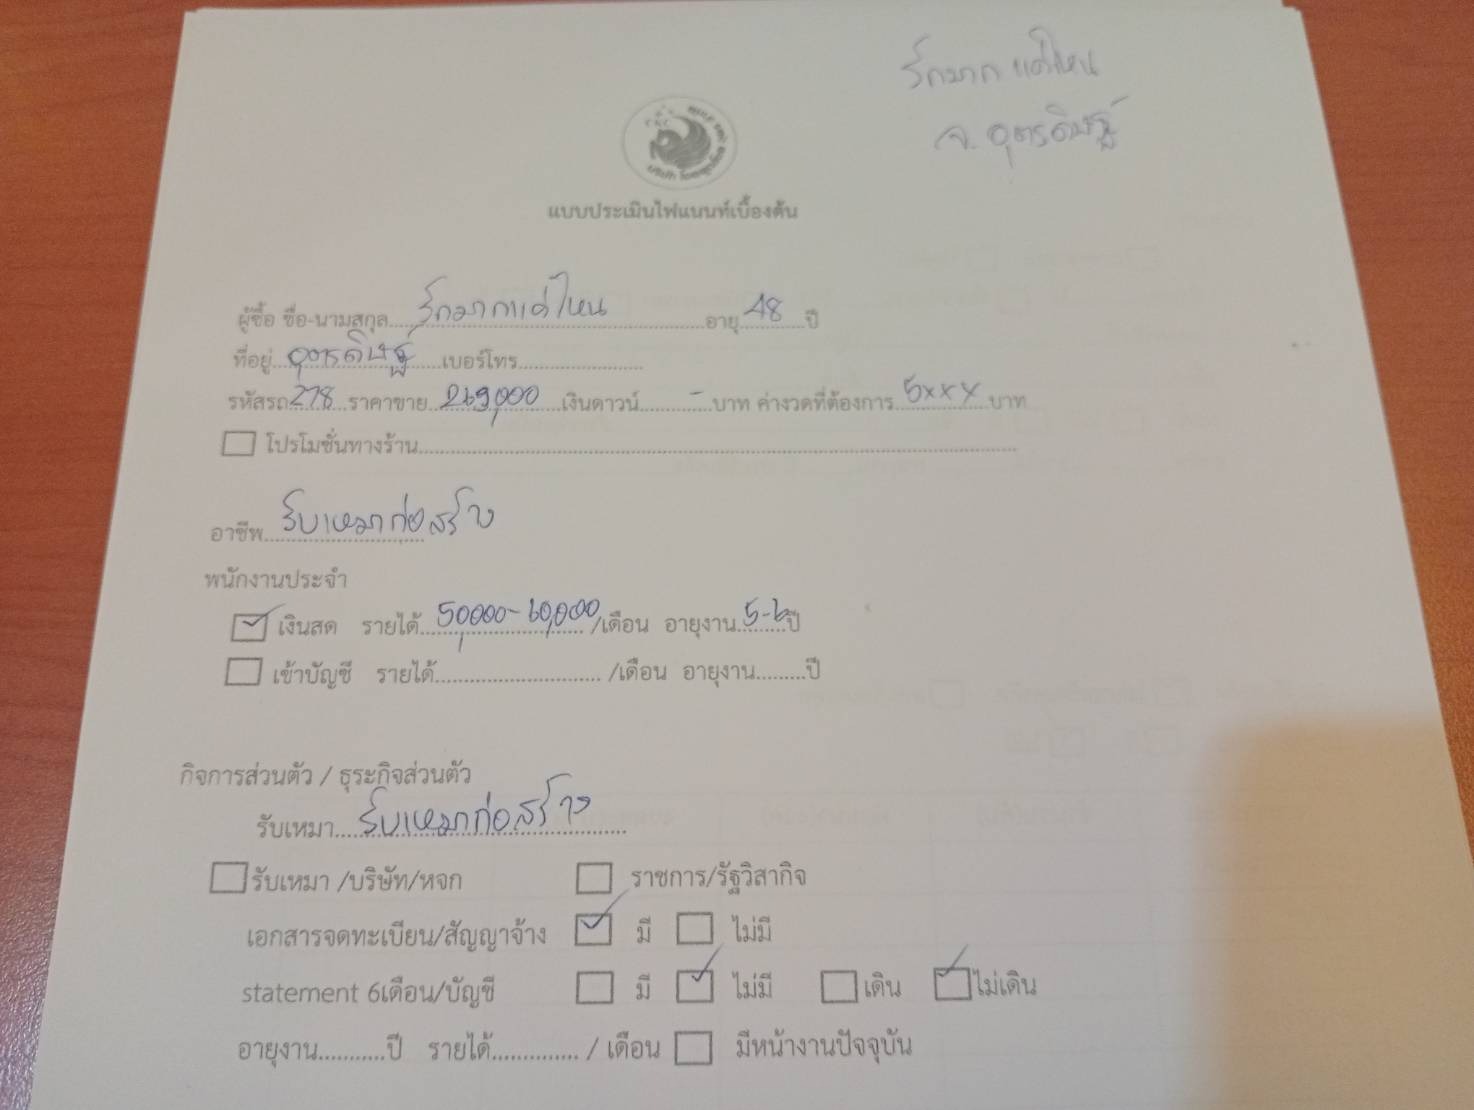 รักมาก แค่ไหน
จ. อุตรดิษฐ์
แบบประเมินไฟแนนท์เบื้องต้น
ผู้ซื้อ ชื่อ-นามสกุล รักมากแค่ไหน อายุ 48 ปี
ที่อยู่ อุตรดิษฐ์ เบอร์โทร
รหัสรถ 278 ราคาขาย 269,000 เงินดาวน์ - บาท ค่างวดที่ต้องการ 5xxx บาท
โปรโมชั่นทางร้าน
อาชีพ รับเหมาก่อสร้าง
พนักงานประจำ
เงินสด รายได้ 50,000-60,000 /เดือน อายุงาน 5-6 ปี
เข้าบัญชี รายได้ /เดือน อายุงาน ปี
กิจการส่วนตัว / ธุระกิจส่วนตัว
รับเหมา รับเหมาก่อสร้าง
รับเหมา /บริษัท/หจก ราชการ/รัฐวิสากิจ
เอกสารจดทะเบียน/สัญญาจ้าง มี ไม่มี
statement 6เดือน/บัญชี มี ไม่มี เดิน ไม่เดิน
อายุงาน ปี รายได้ / เดือน มีหน้างานปัจจุบัน